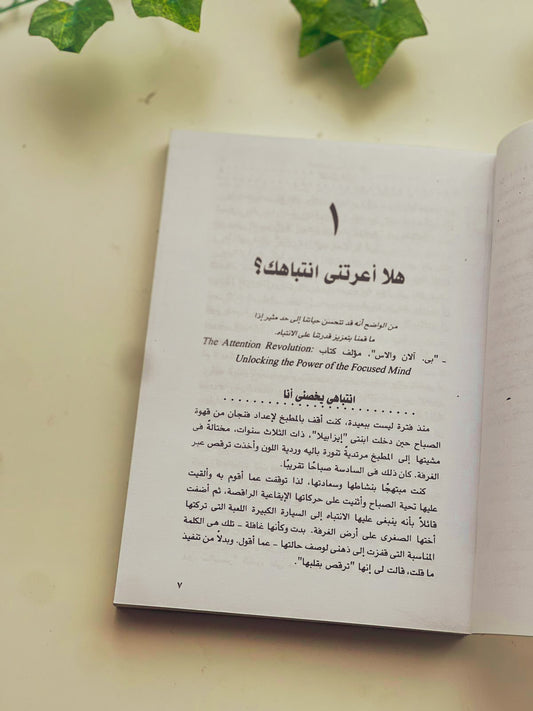 ١
هلا أعرتنى انتباهك؟
من الواضح أنه قد تتحسن حياتنا إلى حد مثير إذا
ما قمنا بتعزيز قدرتنا على الانتباه.
- "بى. آلان والاس"، مؤلف كتاب The Attention Revolution:
Unlocking the Power of the Focused Mind
انتباهى يخصنى أنا
منذ فترة ليست ببعيدة، كنت أقف بالمطبخ لإعداد فنجان من قهوة
الصباح حين دخلت ابنتى "إيزابيلا"، ذات الثلاث سنوات، مختالة فى
مشيتها إلى المطبخ مرتدية تنورة باليه وردية اللون وأخذت ترقص عبر
الغرفة. كان ذلك فى السادسة صباحًا تقريبًا.
كنت مبتهجًا بنشاطها وسعادتها، لذا توقفت عما أقوم به وألقيت
عليها تحية الصباح وأثنيت على حركاتها الإيقاعية الراقصة، ثم أضفت
قائلاً بأنه ينبغى عليها الانتباه إلى السيارة الكبيرة اللعبة التى تركتها
أختها الصغرى على أرض الغرفة. بدت وكأنها غافلة - تلك هى الكلمة
المناسبة التى قفزت إلى ذهنى لوصف حالتها - عما أقول. وبدلاً من تنفيذ
ما قلت، قالت لى إنها "ترقص بقلبها".
٧